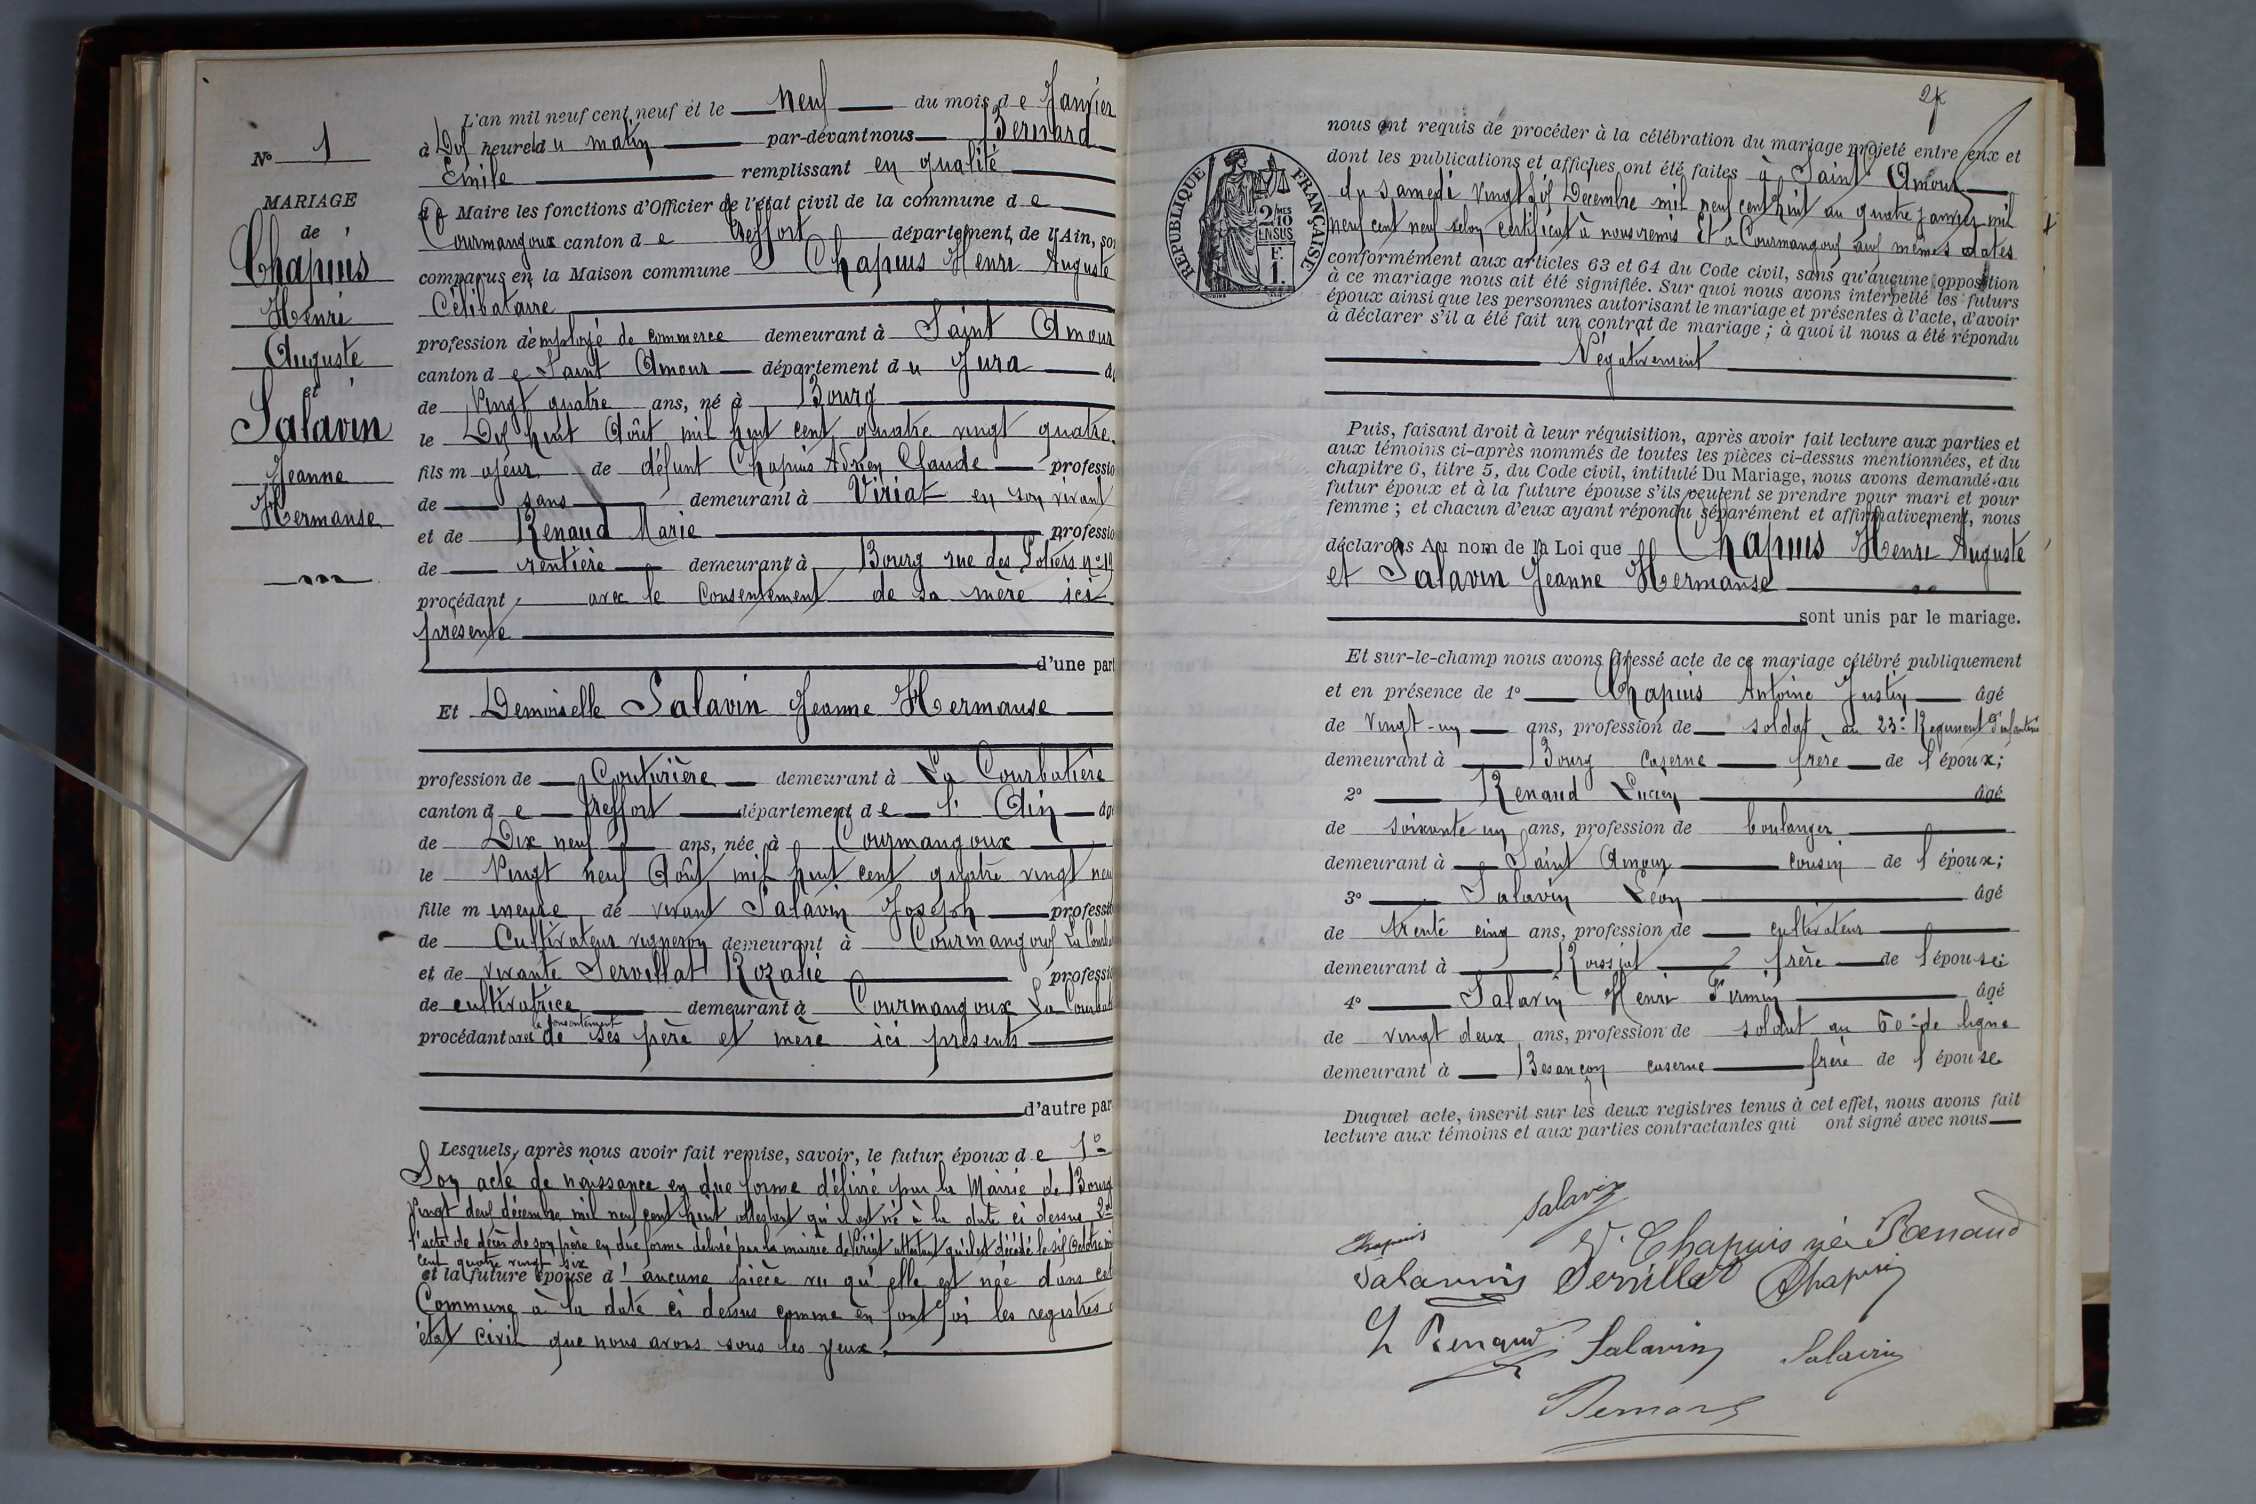 N° 1
MARIAGE
de
Chapuis
Henri
Auguste
et
Salavin
Jeanne
Hermanse
L'an mil neuf cent neuf et le neuf du mois de Janvier
à Dix heures du matin par-devant nous Bernard
Emile remplissant en qualité
de Maire les fonctions d'Officier de l'état civil de la commune de
Courmangoux canton de Treffort département de l'Ain, son
comparus en la Maison commune Chapuis Henri Auguste
Célibataire
profession d'employé de commerce demeurant à Saint Amour
canton de Saint Amour département du Jura
de vingt quatre ans, né à Bourg
le Dix huit Août mil huit cent quatre vingt quatre
fils majeur de défunt Chapuis Adrien Claude professio
de sans demeurant à Viriat en son vivant
et de Renaud Marie professio
de rentière demeurant à Bourg rue des Potiers n° 19
procédant avec le consentement de sa mère ici
présente
d'une part
Et Demoiselle Salavin Jeanne Hermanse
profession de Couturière demeurant à La Courbatière
canton de Treffort département de l'Ain âgé
de Dix neuf ans, née à Courmangoux
le Vingt neuf Août mil huit cent quatre vingt neuf
fille mineure de vivant Salavin Joseph professio
de Cultivateur vigneron demeurant à Courmangoux La Courba
et de vivante Servillat Rozalie professio
de cultivatrice demeurant à Courmangoux La Courbat
procédant avec le consentement de ses père et mère ici présents
d'autre par
Lesquels, après nous avoir fait remise, savoir, le futur époux de 1°
Son acte de naissance en due forme délivré par la Mairie de Bourg
vingt deux décembre mil neuf cent huit attestant qu'il est né à la date ci dessus 2°
l'acte de décès de son père en due forme délivré par la mairie de Viriat attestant qu'il est décédé le six Octobre mil
cent quatre vingt six
et la future épouse d'aucune pièce vu qu'elle est née dans cet
Commune à la date ci dessus comme en font foi les registres d
état civil que nous avons sous les yeux.
2
RÉPUBLIQUE FRANÇAISE
2/MES
10
EN SUS
F.
1.
nous ont requis de procéder à la célébration du mariage projeté entre eux et
dont les publications et affiches ont été faites à Saint Amour
du samedi vingt six Decembre mil neuf cent huit au quatre janvier mil
neuf cent neuf selon certificat à nous remis et à Courmangoux aux mêmes dates
conformément aux articles 63 et 64 du Code civil, sans qu'aucune opposition
à ce mariage nous ait été signifiée. Sur quoi nous avons interpellé les futurs
époux ainsi que les personnes autorisant le mariage et présentes à l'acte, d'avoir
à déclarer s'il a été fait un contrat de mariage ; à quoi il nous a été répondu
Négativement
Puis, faisant droit à leur réquisition, après avoir fait lecture aux parties et
aux témoins ci-après nommés de toutes les pièces ci-dessus mentionnées, et du
chapitre 6, titre 5, du Code civil, intitulé Du Mariage, nous avons demandé au
futur époux et à la future épouse s'ils veulent se prendre pour mari et pour
femme ; et chacun d'eux ayant répondu séparément et affirmativement, nous
déclarons Au nom de la Loi que Chapuis Henri Auguste
et Salavin Jeanne Hermanse
sont unis par le mariage.
Et sur-le-champ nous avons dressé acte de ce mariage célébré publiquement
et en présence de 1° Chapuis Antoine Justin âgé
de vingt-un ans, profession de soldat au 23e Régiment d'infanterie
demeurant à Bourg caserne frère de l'époux;
2° Renaud Lucien âgé
de soixante un ans, profession de boulanger
demeurant à Saint Amour cousin de l'époux;
3° Salavin Léon âgé
de trente cinq ans, profession de cultivateur
demeurant à Rossiat frère de l'épouse
4° Salavin Henri Firmin âgé
de vingt deux ans, profession de soldat au 60e de ligne
demeurant à Besançon caserne frère de l'épouse
Duquel acte, inscrit sur les deux registres tenus à cet effet, nous avons fait
lecture aux témoins et aux parties contractantes qui ont signé avec nous
Salavin
Chapuis Ve Chapuis née Renaud
Salavin Servillat Chapuis
L Renaud Salavin Salavin
Bernard